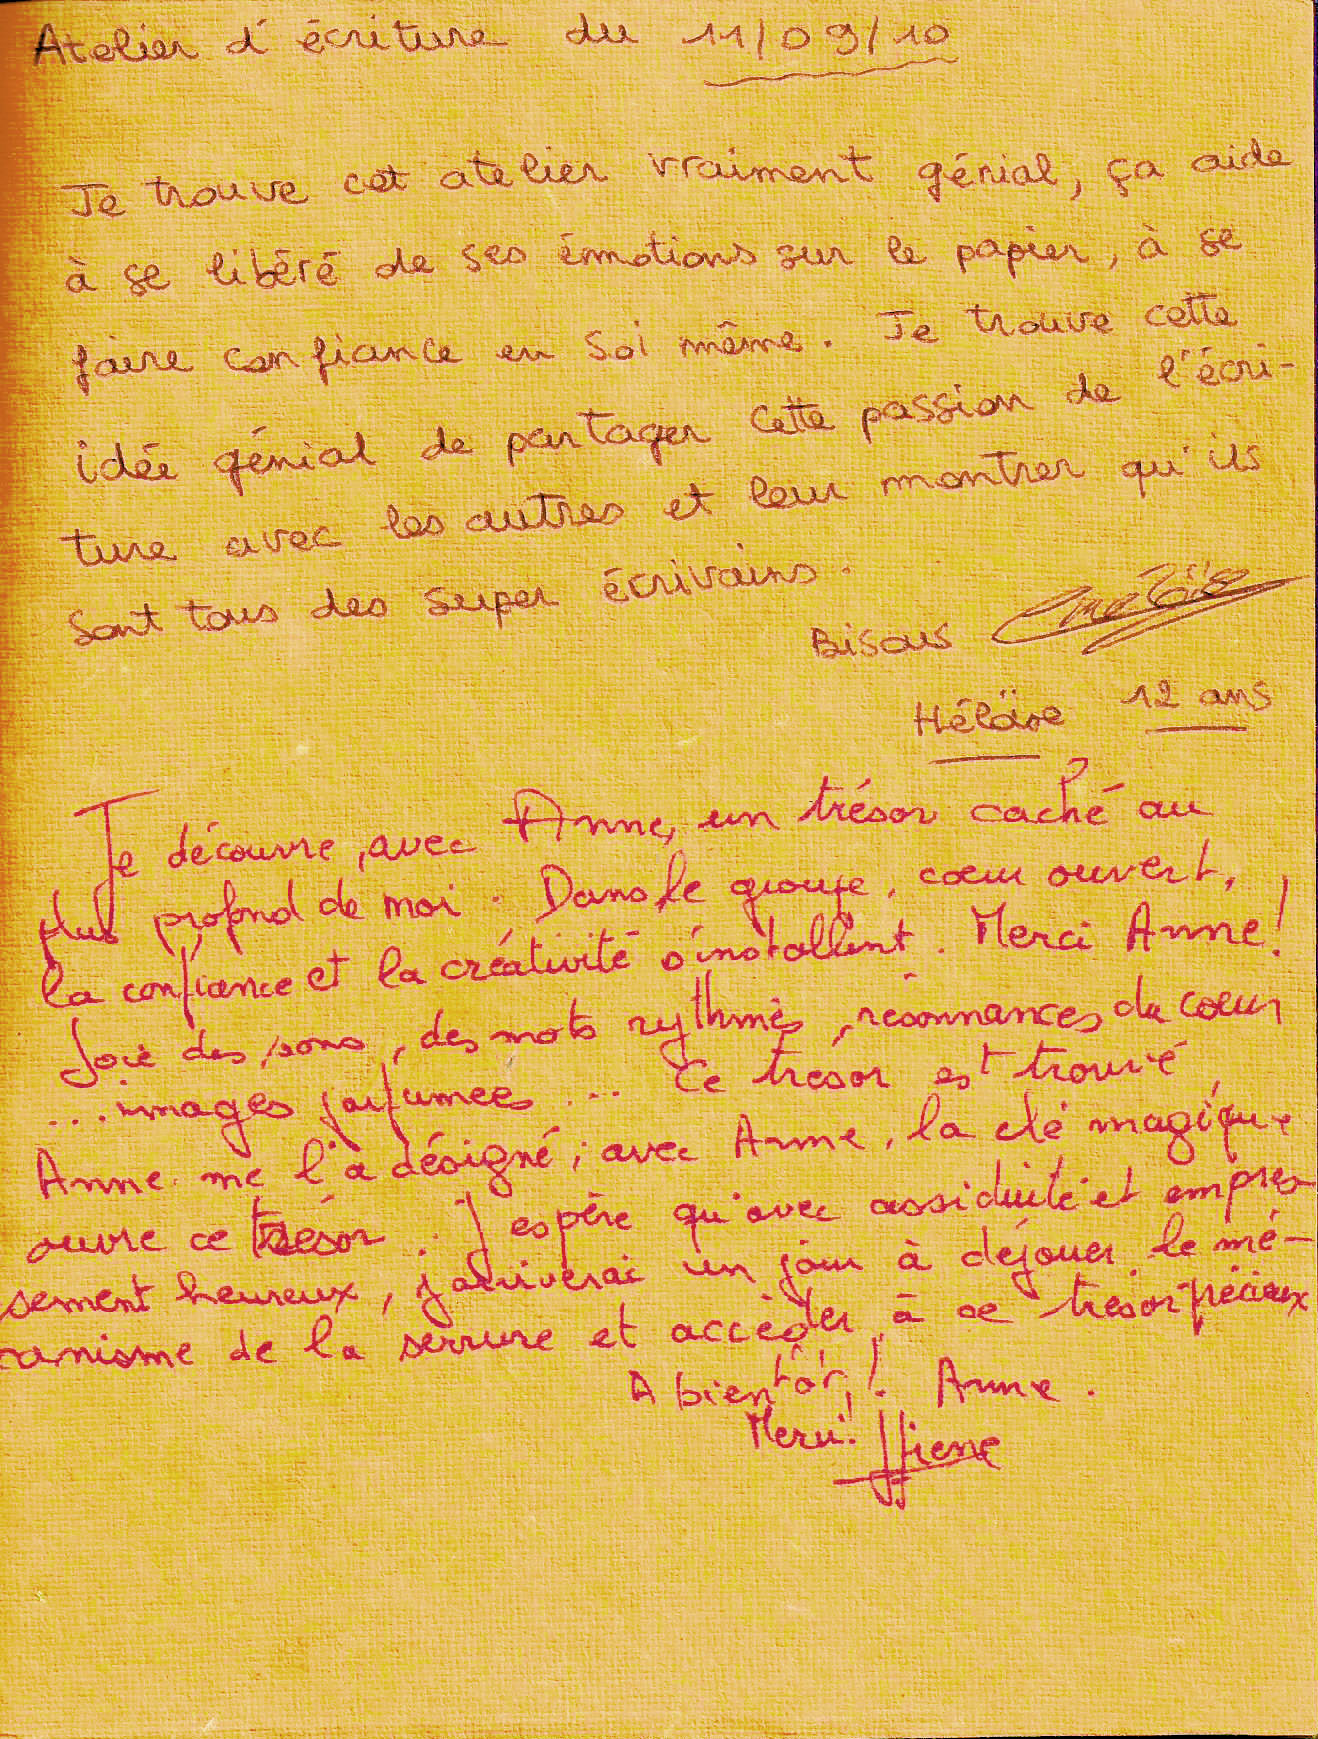 Atelier d'écriture du 11/09/10
Je trouve cet atelier vraiment génial, ça aide
à se libéré de ses émmotions sur le papier, à se
faire confiance en soi même. Je trouve cette
idée génial de partager cette passion de l'écri-
ture avec les autres et leur montrer qu'ils
sont tous des super écrivains.
Bisous
12 ans
Je découvre, avec Anne, un trésor caché au
plus profond de moi. Dans le groupe, coeur ouvert,
la confiance et la créativité s'installent. Merci Anne!
Joie des sons, des mots rythmés, résonnances du coeur
... images parfumées ... Ce trésor est trouvé,
Anne me l'a désigné; avec Anne, la clé magique
ouvre ce trésor. J'espère qu'avec assiduité et empres-
sement heureux, j'arriverai un jour à déjouer le mé-
canisme de la serrure et accéder à ce trésor précieux
A bientôt! Anne.
Merci!